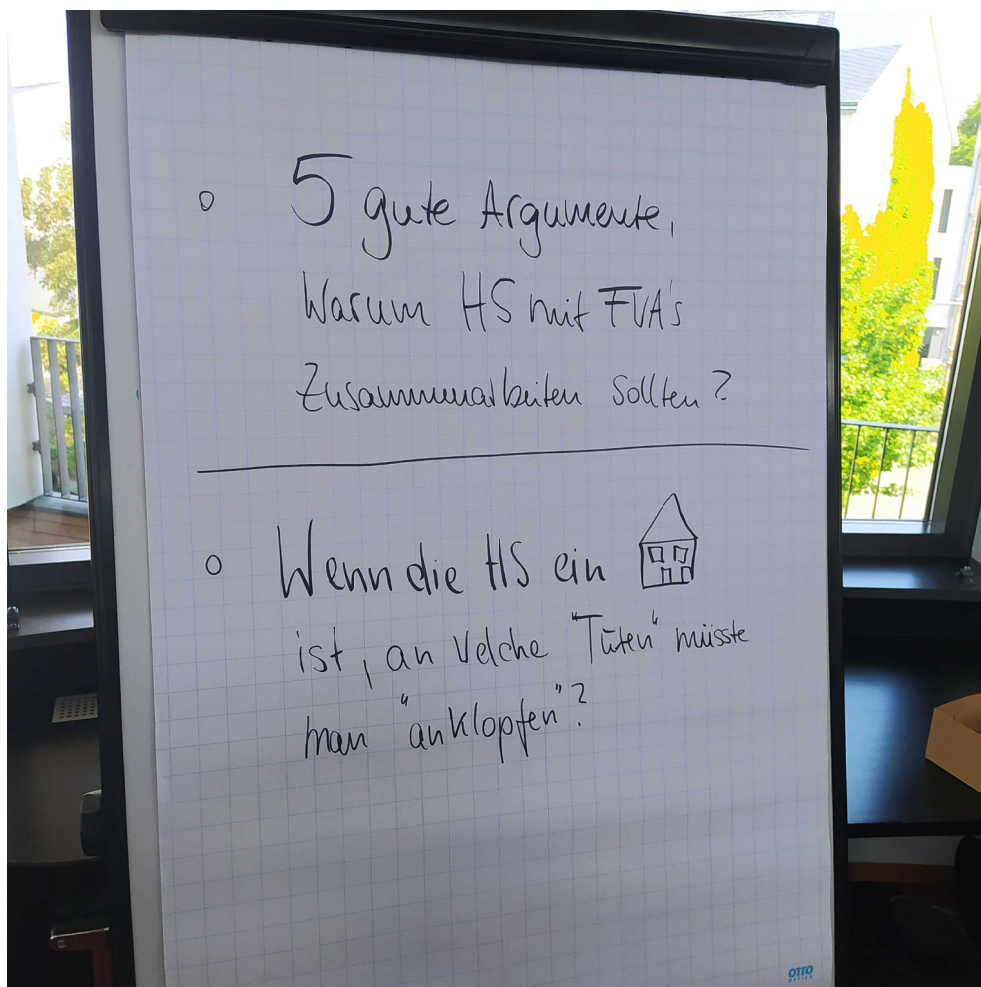 5 gute Argumente,
Warum HS mit FVA's
Zusammenarbeiten sollten?
Wenn die HS ein
ist, an Welche "Türen" müsste
man "anklopfen"?
OTTO
OFFICE